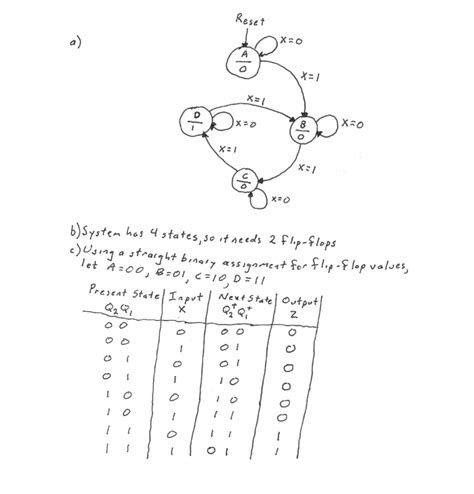 a)
Reset
A
0
X=0
X=1
D
1
X=0
X=1
B
0
X=0
X=1
X=1
C
0
X=0
b) System has 4 states, so it needs 2 flip-flops
c) Using a straight binary assignment for flip-flop values,
let A=00, B=01, C=10, D=11
Present State | Input | Next State | Output
Q2 Q1 | X | Q2+ Q1+ | Z
0 0 | 0 | 0 0 | 0
0 0 | 1 | 0 1 | 0
0 1 | 0 | 0 1 | 0
0 1 | 1 | 1 0 | 0
1 0 | 0 | 1 0 | 0
1 0 | 1 | 1 1 | 0
1 1 | 0 | 1 1 | 1
1 1 | 1 | 0 1 | 1